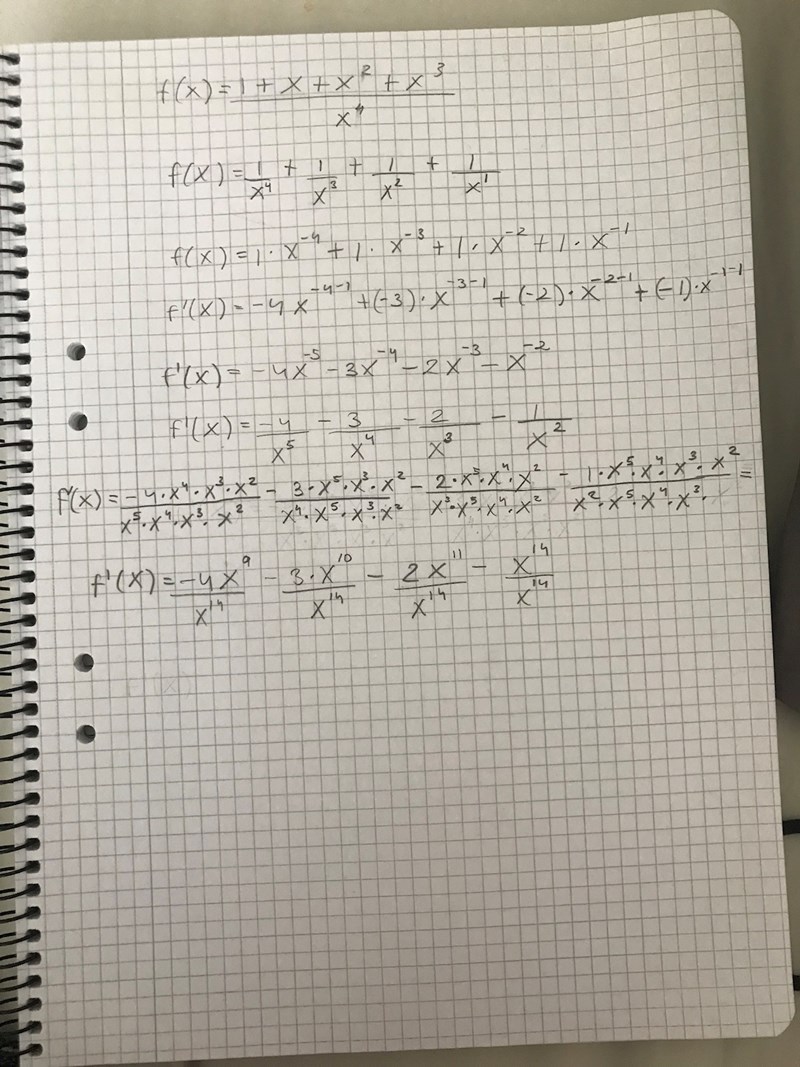 f(x) = (1 + x + x² + x³)/x⁴
f(x) = 1/x⁴ + 1/x³ + 1/x² + 1/x¹
f(x) = 1 · x⁻⁴ + 1 · x⁻³ + 1 · x⁻² + 1 · x⁻¹
f'(x) = -4x⁻⁴⁻¹ + (-3) · x⁻³⁻¹ + (-2) · x⁻²⁻¹ + (-1) · x⁻¹⁻¹
f'(x) = -4x⁻⁵ - 3x⁻⁴ - 2x⁻³ - x⁻²
f'(x) = -4/x⁵ - 3/x⁴ - 2/x³ - 1/x²
f'(x) = (-4 · x⁴ · x³ · x²)/(x⁵ · x⁴ · x³ · x²) - (3 · x⁵ · x³ · x²)/(x⁴ · x⁵ · x³ · x²) - (2 · x⁵ · x⁴ · x²)/(x³ · x⁵ · x⁴ · x²) - (1 · x⁵ · x⁴ · x³ · x²)/(x² · x⁵ · x⁴ · x³ ·) =
f'(x) = -4x⁹/x¹⁴ - 3 · x¹⁰/x¹⁴ - 2x¹¹/x¹⁴ - x¹⁴/x¹⁴